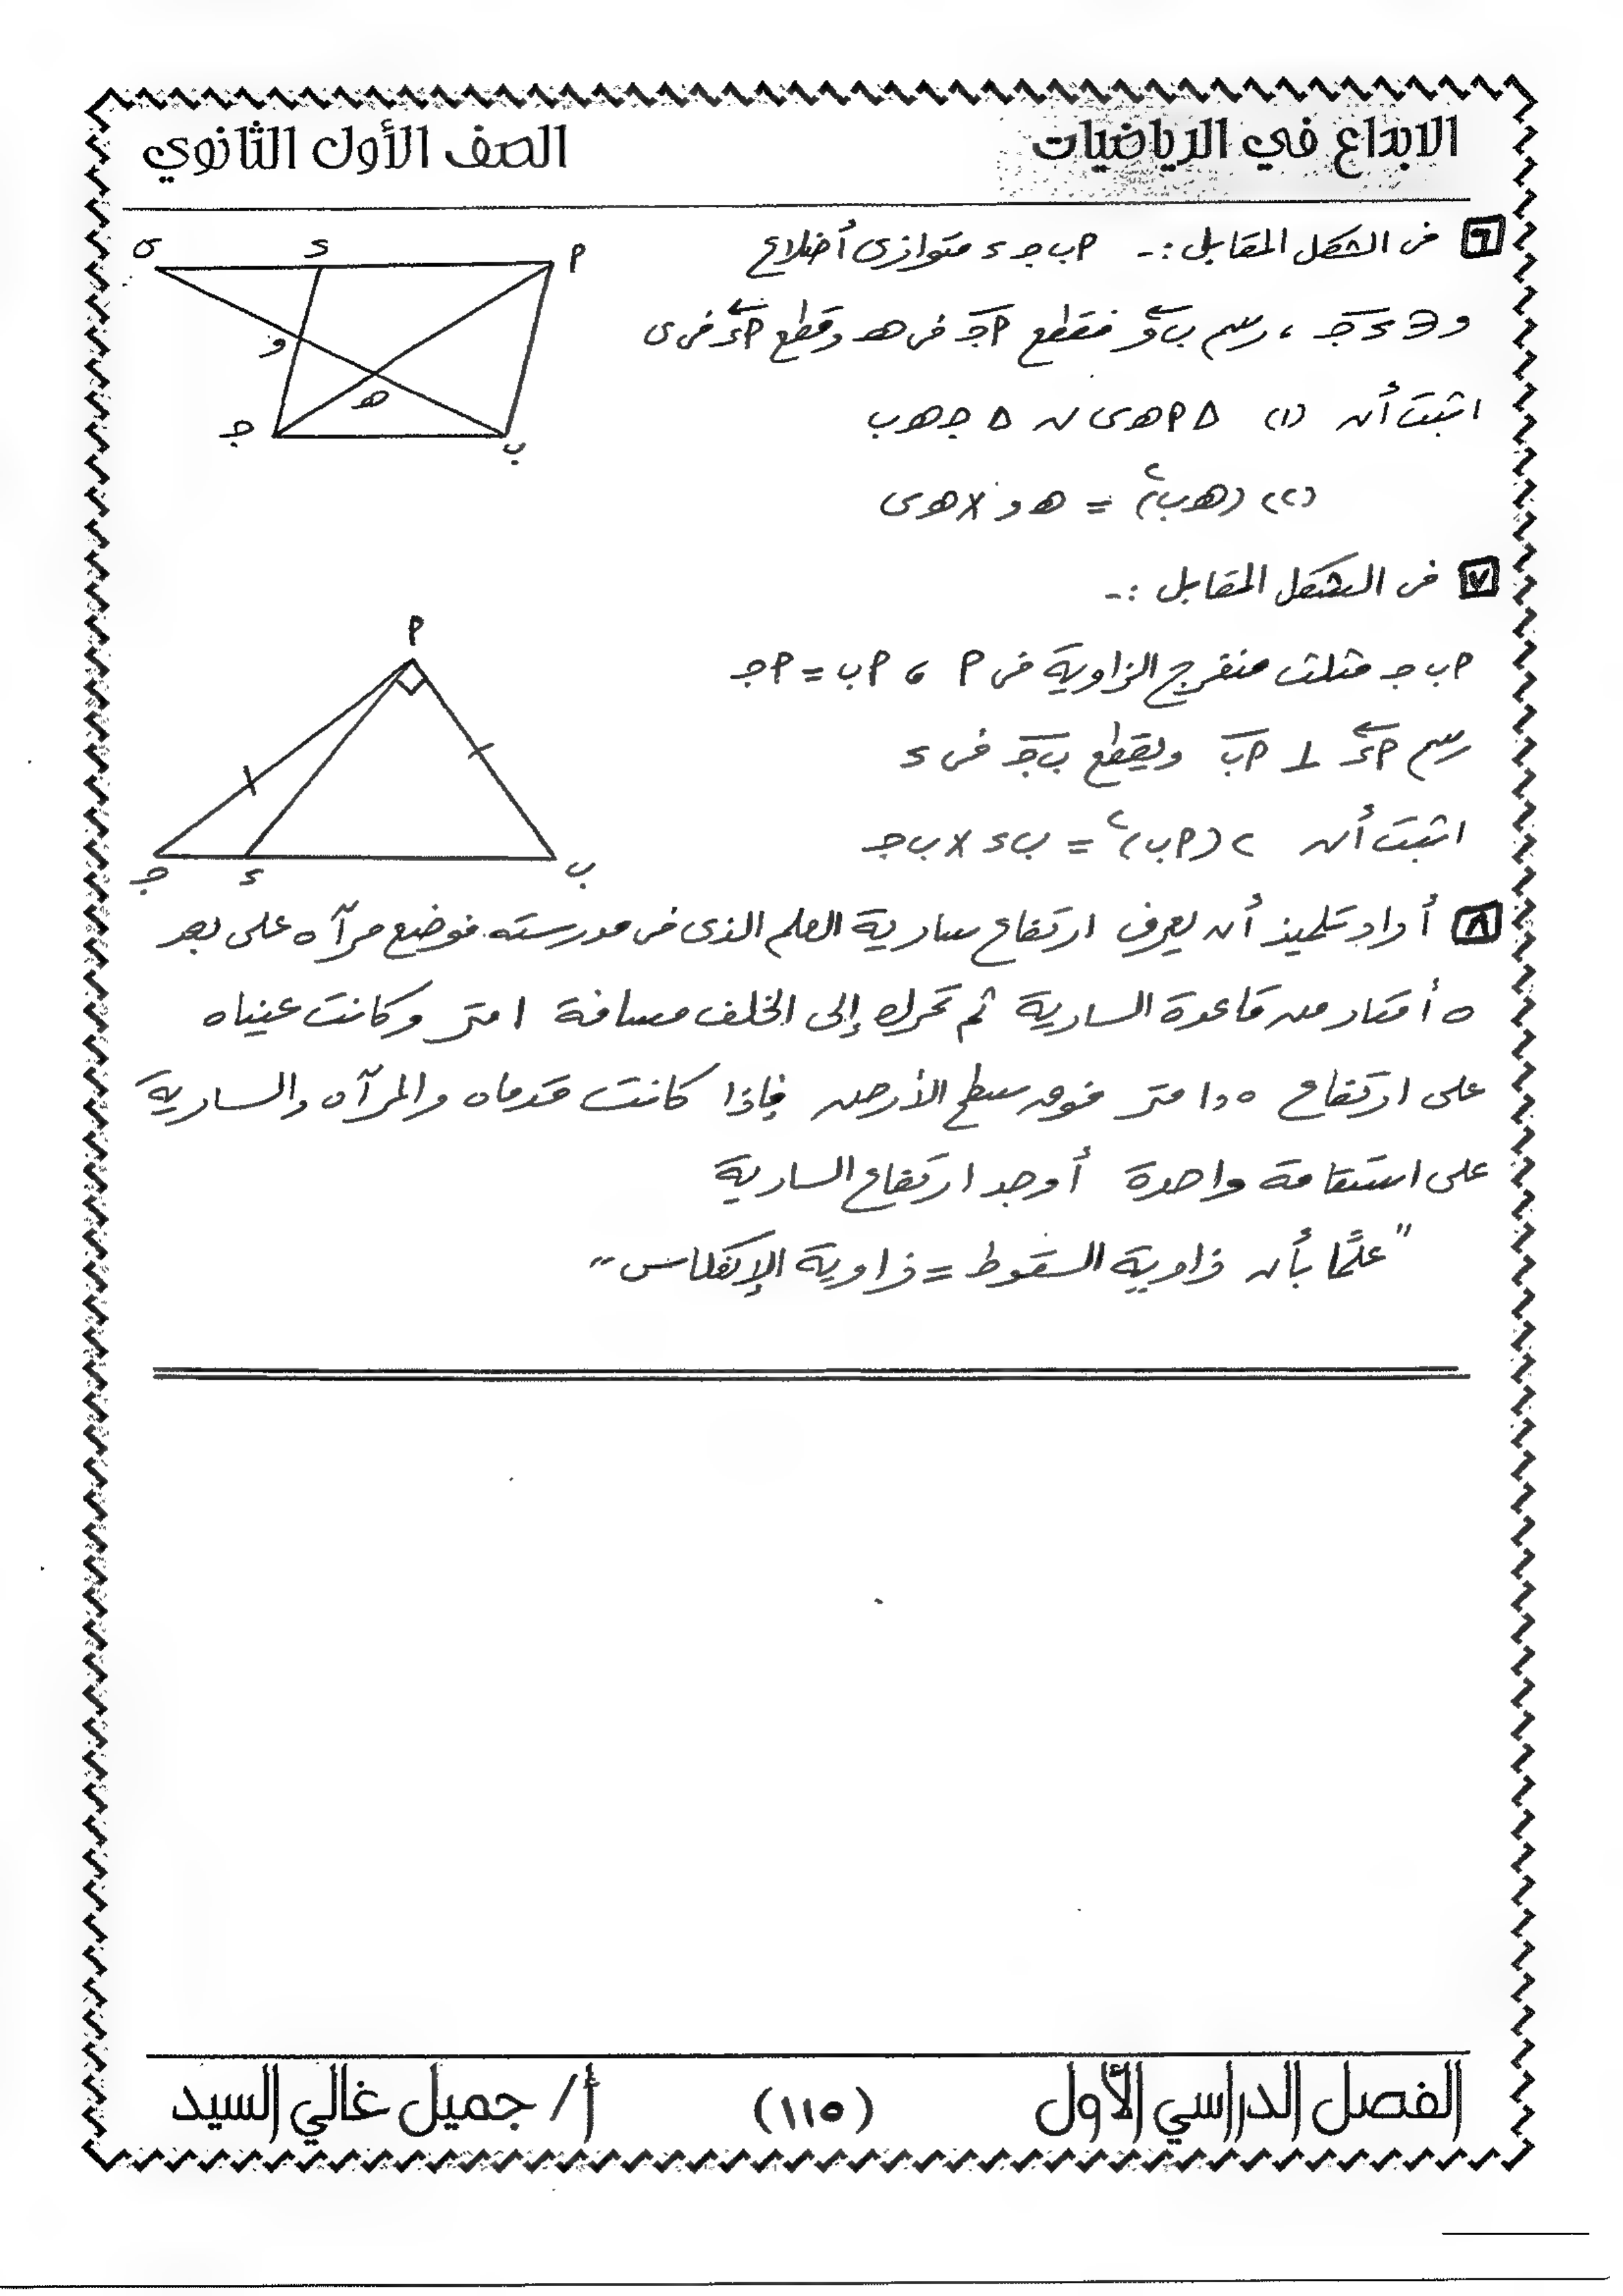 الابداع في الرياضيات
الصف الأول الثانوي
٦ فى الشكل المقابل :- أ ب جـ ء متوازى أضلاع
و ∈ ء جـ ، رسم ب و فقطع أ جـ فى هـ وقطع أ ء فى ى
اثبت أن (١) Δ أ هـ ى ~ Δ جـ هـ ب
(٢) (هـ ب)٢ = هـ و × هـ ى
ى
ء
أ
و
هـ
جـ
ب
٧ فى الشكل المقابل :-
أ ب جـ مثلث منفرج الزاوية فى أ ، أ ب = أ جـ
رسم أ ء ⊥ أ ب ويقطع ب جـ فى ء
اثبت أن ٢ (أ ب)٢ = ب ء × ب جـ
أ
جـ
ء
ب
٨ أراد تلميذ أن يعرف ارتفاع سارية العلم الذى فى مدرسته فوضع مرآه على بعد
٥ أمتار من قاعدة السارية ثم تحرك إلى الخلف مسافة ١ متر وكانت عيناه
على ارتفاع ١,٥ متر فوق سطح الأرض فإذا كانت قدماه والمرآه والسارية
على استقامة واحدة أوجد ارتفاع السارية
"علمًا بأن زاوية السقوط = زاوية الإنعكاس"
الفصل الدراسي الأول
(١١٥)
أ/ جميل غالي السيد